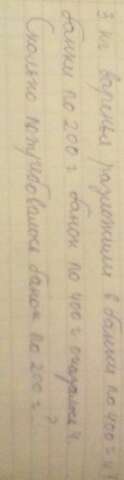 3 кг варенья разложили в банки по 400 г и
банки по 200 г. банок по 400 г оказалось 4.
Сколько потребовалось банок по 200 г?